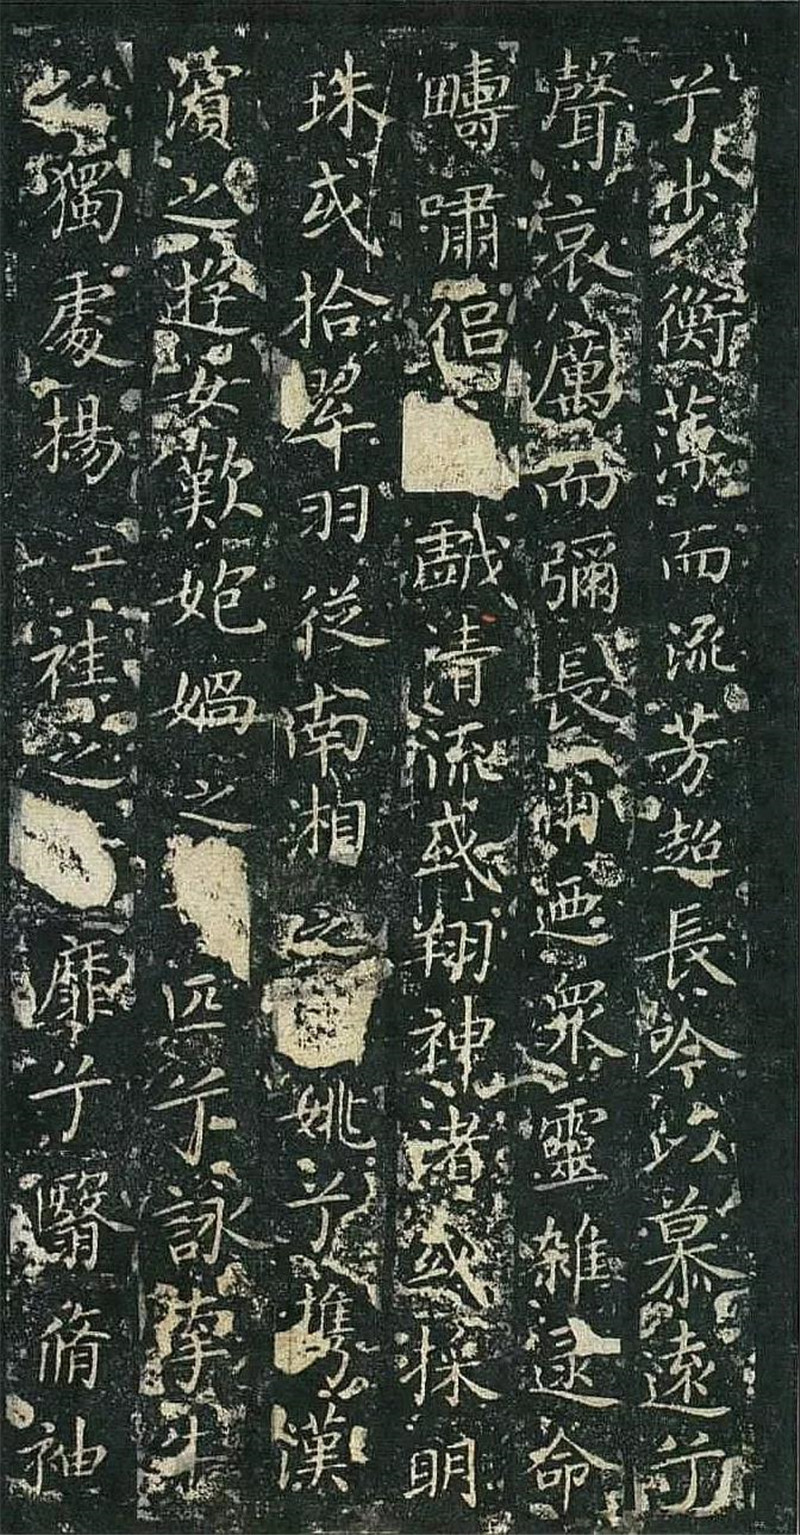 兮步衡薄而流芳超長吟以慕遠兮
聲哀厲而彌長爾迺衆靈雜遝命
疇嘯侶戲清流或翔神渚或採明
珠或拾翠羽從南湘之姚兮攜漢
濱之遊女歎㚿媧之匹兮詠牽牛
之獨處揚工袿之靡兮翳脩袖